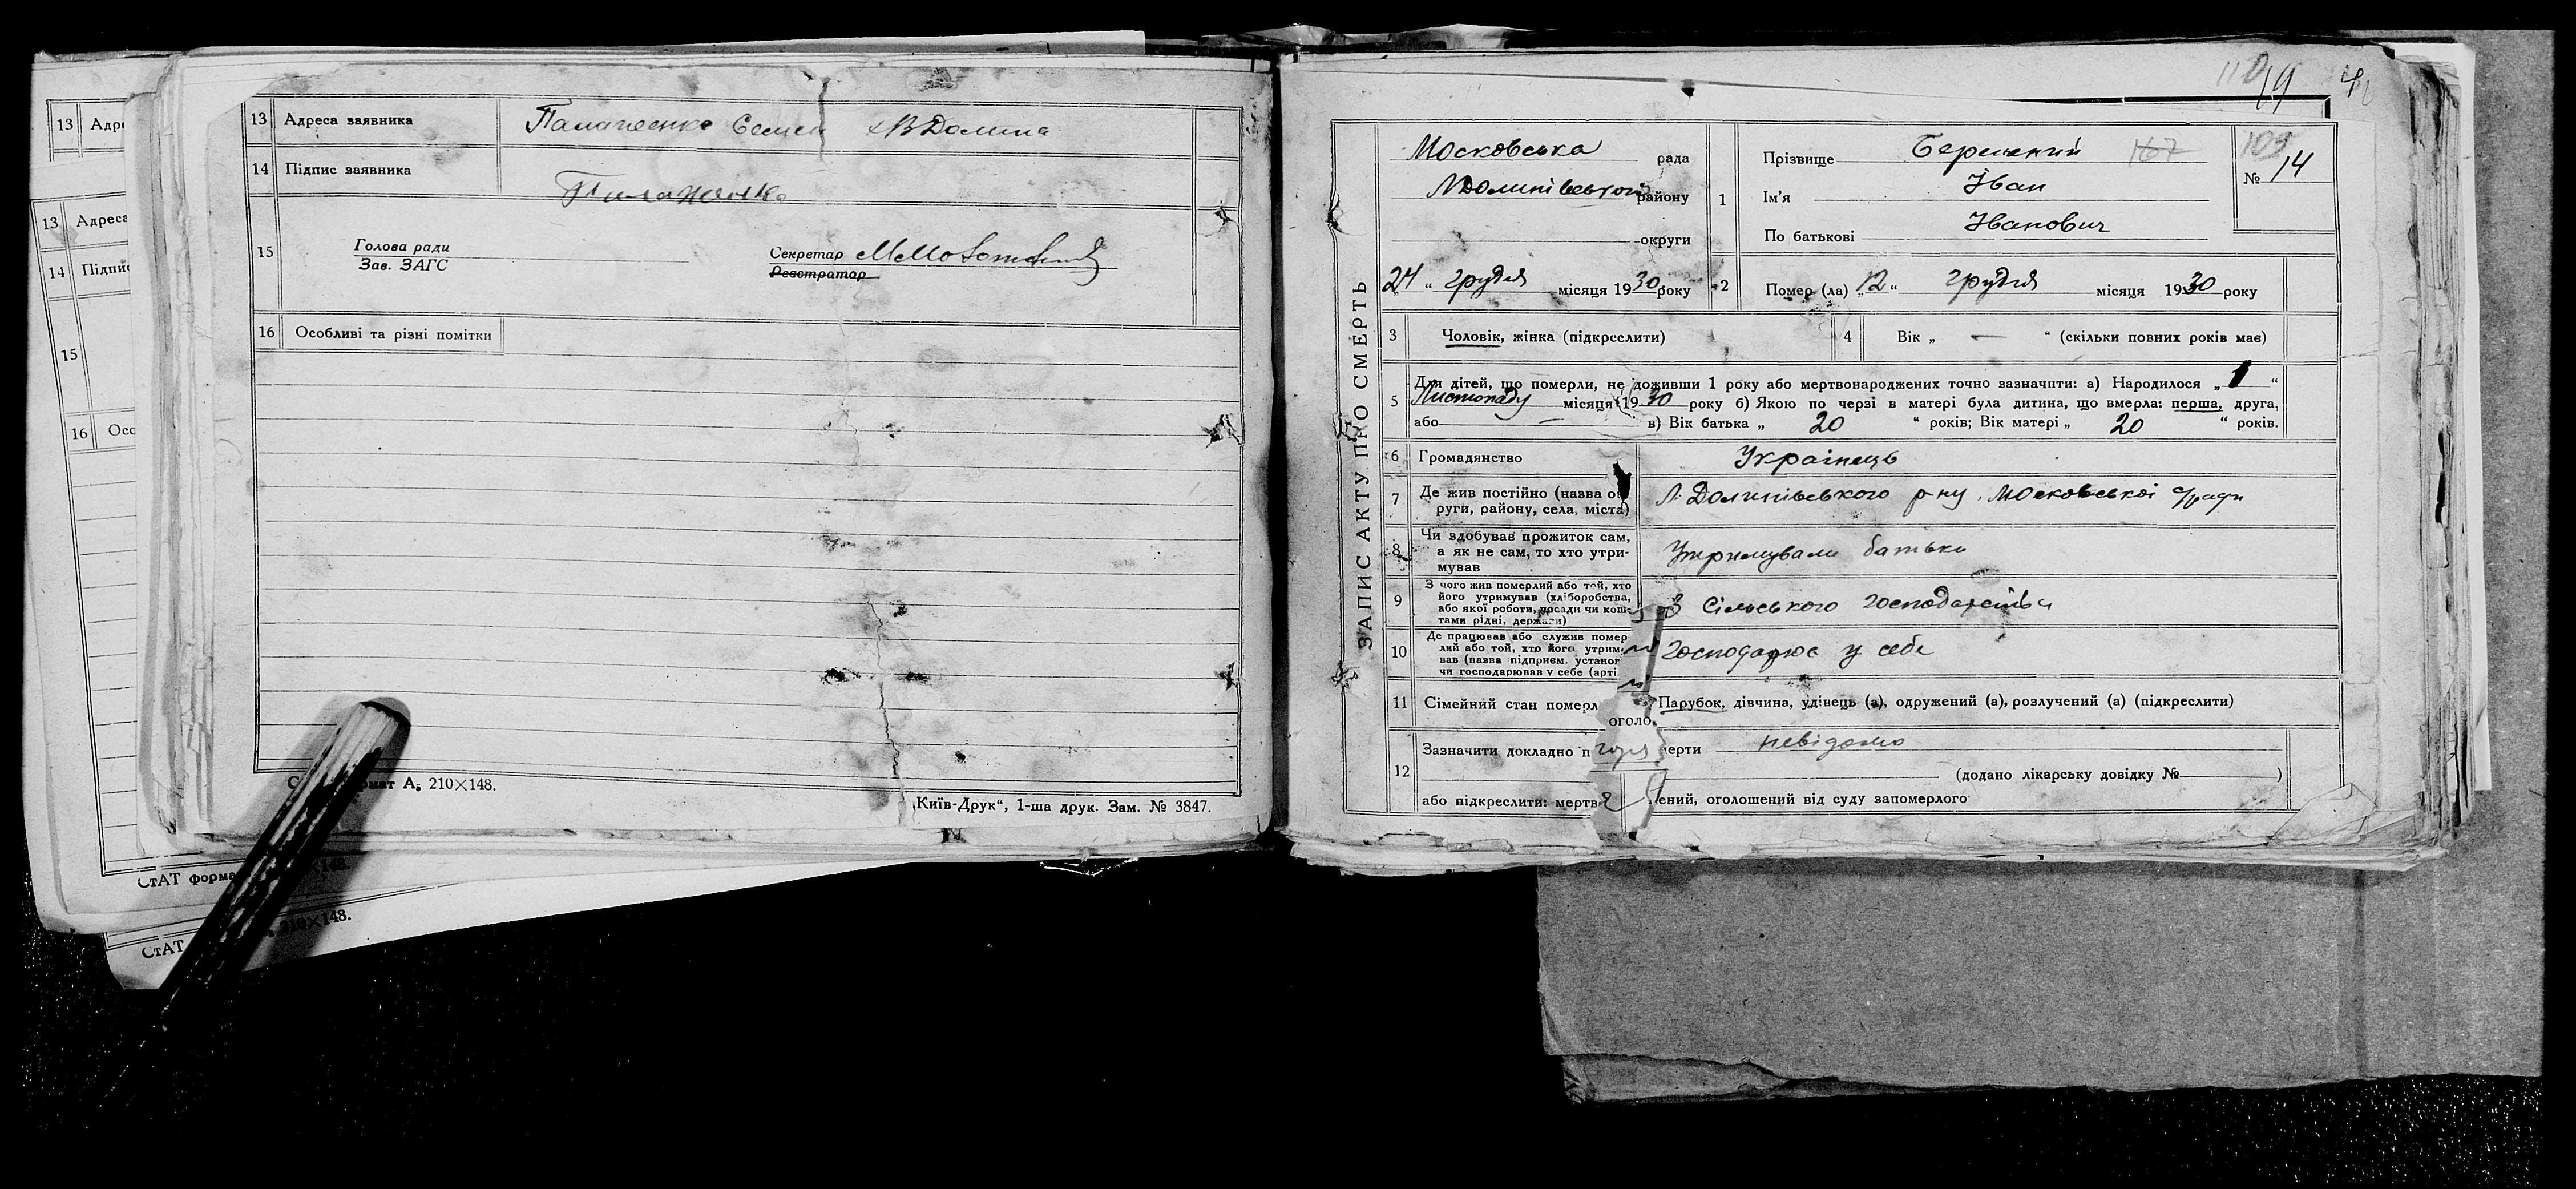 13 Адреса заявника Семен х В Долина
14 Підпис заявника
15 Голова ради
Зав. ЗАГС
Секретар
Реєстратор
16 Особливі та різні помітки
А5 210×148.
„Київ-Друк“, 1-ша друк. Зам. № 3847.
13 Адре
13 Адреса
14 Підпис
15
16 Осо
СтАТ форма ×148.
СтАТ 210×148.
110
19
ЗАПИС АКТУ ПРО СМЕРТЬ
Московська рада
району
округи
24 “ грудня місяця 1930 року
1 Прізвище 167
Ім'я Іван
По батькові Іванович
109
№ 14
2 Помер (ла) „12 “ грудня місяця 1930 року
3 Чоловік, жінка (підкреслити)
4 Вік „ — “ (скільки повних років має)
5 Для дітей, що померли, не доживши 1 року або мертвонароджених точно зазначити: а) Народилося „ 1 “
Листопаду місяця 1930 року б) Якою по черзі в матері була дитина, що вмерла: перша, друга,
або — в) Вік батька „ 20 “ років; Вік матері „ 20 “ років.
6 Громадянство Українець
7 Де жив постійно (назва ок
руги, району, села, міста)
Л-Долинівського р-ну. Московської с/ради
8 Чи здобував прожиток сам,
а як не сам, то хто утри-
мував
Утримували батьки
9 З чого жив померлий або той, хто
його утримував (хліборобства,
або якої роботи, посади чи кош-
тами рідні, держави)
З Сільського господарства
10 Де працював або служив помер
лий або той, хто його утриму
вав (назва підприєм. установ
чи господарював у себе (арті
Господарює у себе
11 Сімейний стан померл Парубок, дівчина, удівець (а), одружений (а), розлучений (а) (підкреслити)
оголо
12 Зазначити докладно п ерти невідомо
(додано лікарську довідку № )
або підкреслити: мертв ений, оголошений від суду запомерлого